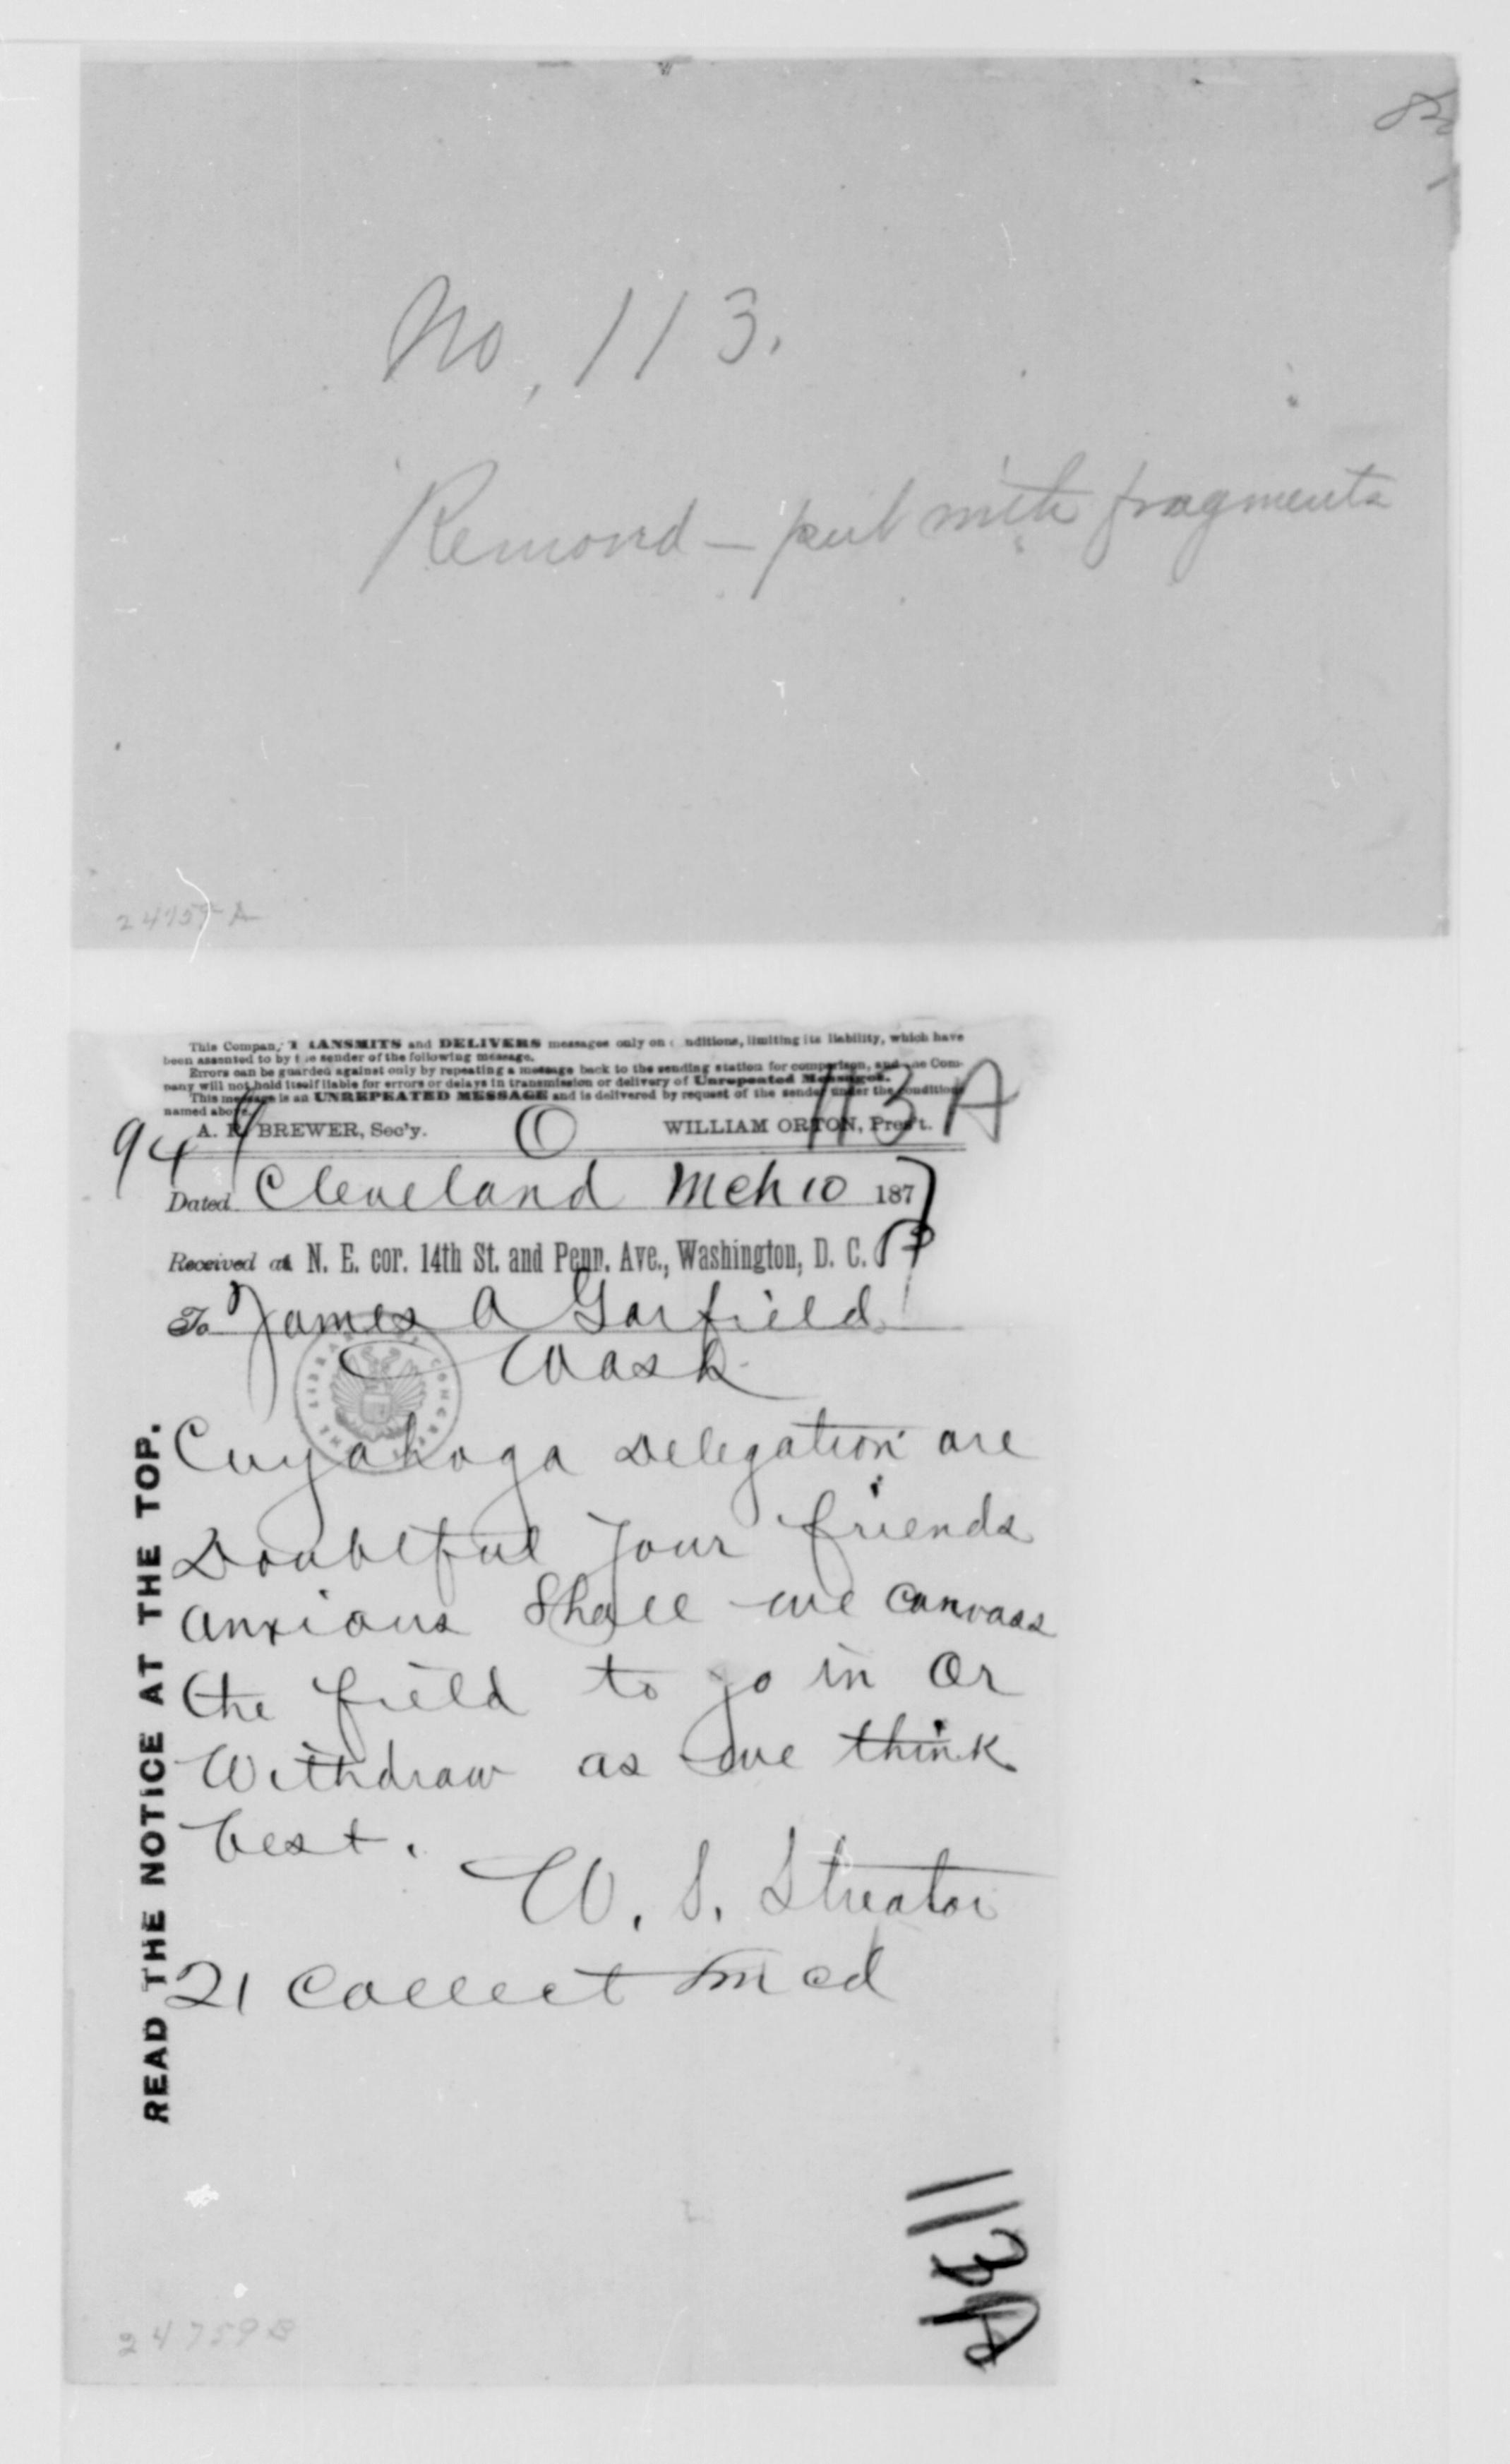 No, 113.
Removed – put with fragments
24759 A
This Company TRANSMITS and DELIVERS messages only on conditions, limiting its liability, which have
been assented to by the sender of the following message.
Errors can be guarded against only by repeating a message back to the sending station for comparison, and the Com-
pany will not hold itself liable for errors or delays in transmission or delivery of Unrepeated Messages.
This message is an UNREPEATED MESSAGE and is delivered by request of the sender under the conditions
named above.
113 A
A. R. BREWER, Sec'y. WILLIAM ORTON, Pres't.
94
Dated Cleveland Mch 10 1877
Received at N. E. cor. 14th St. and Penn. Ave., Washington, D. C.
To James A Garfield
Wash
THE LIBRARY OF CONGRESS
Cuyahoga Delegation are
Doubtful Your friends
anxious Shall we canvass
the field to go in Or
Withdraw as we think
best.
W. S. Streator
21 Collect
READ THE NOTICE AT THE TOP.
113 A
24759 B